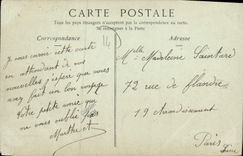 CARTE POSTALE
Tous les pays étrangers n'acceptent pas la correspondance au recto.
Se renseigner à la Poste
Correspondance
Adresse
Je vous envoie cette carte
en attendant de vos
nouvelles j'espère que vous
avez fait un bon voyage
Votre petite amie qui
ne vous oublie pas
Marthe
Melle Madeleine Saintard
72 rue de Flandre
19 Arrondissement
Paris